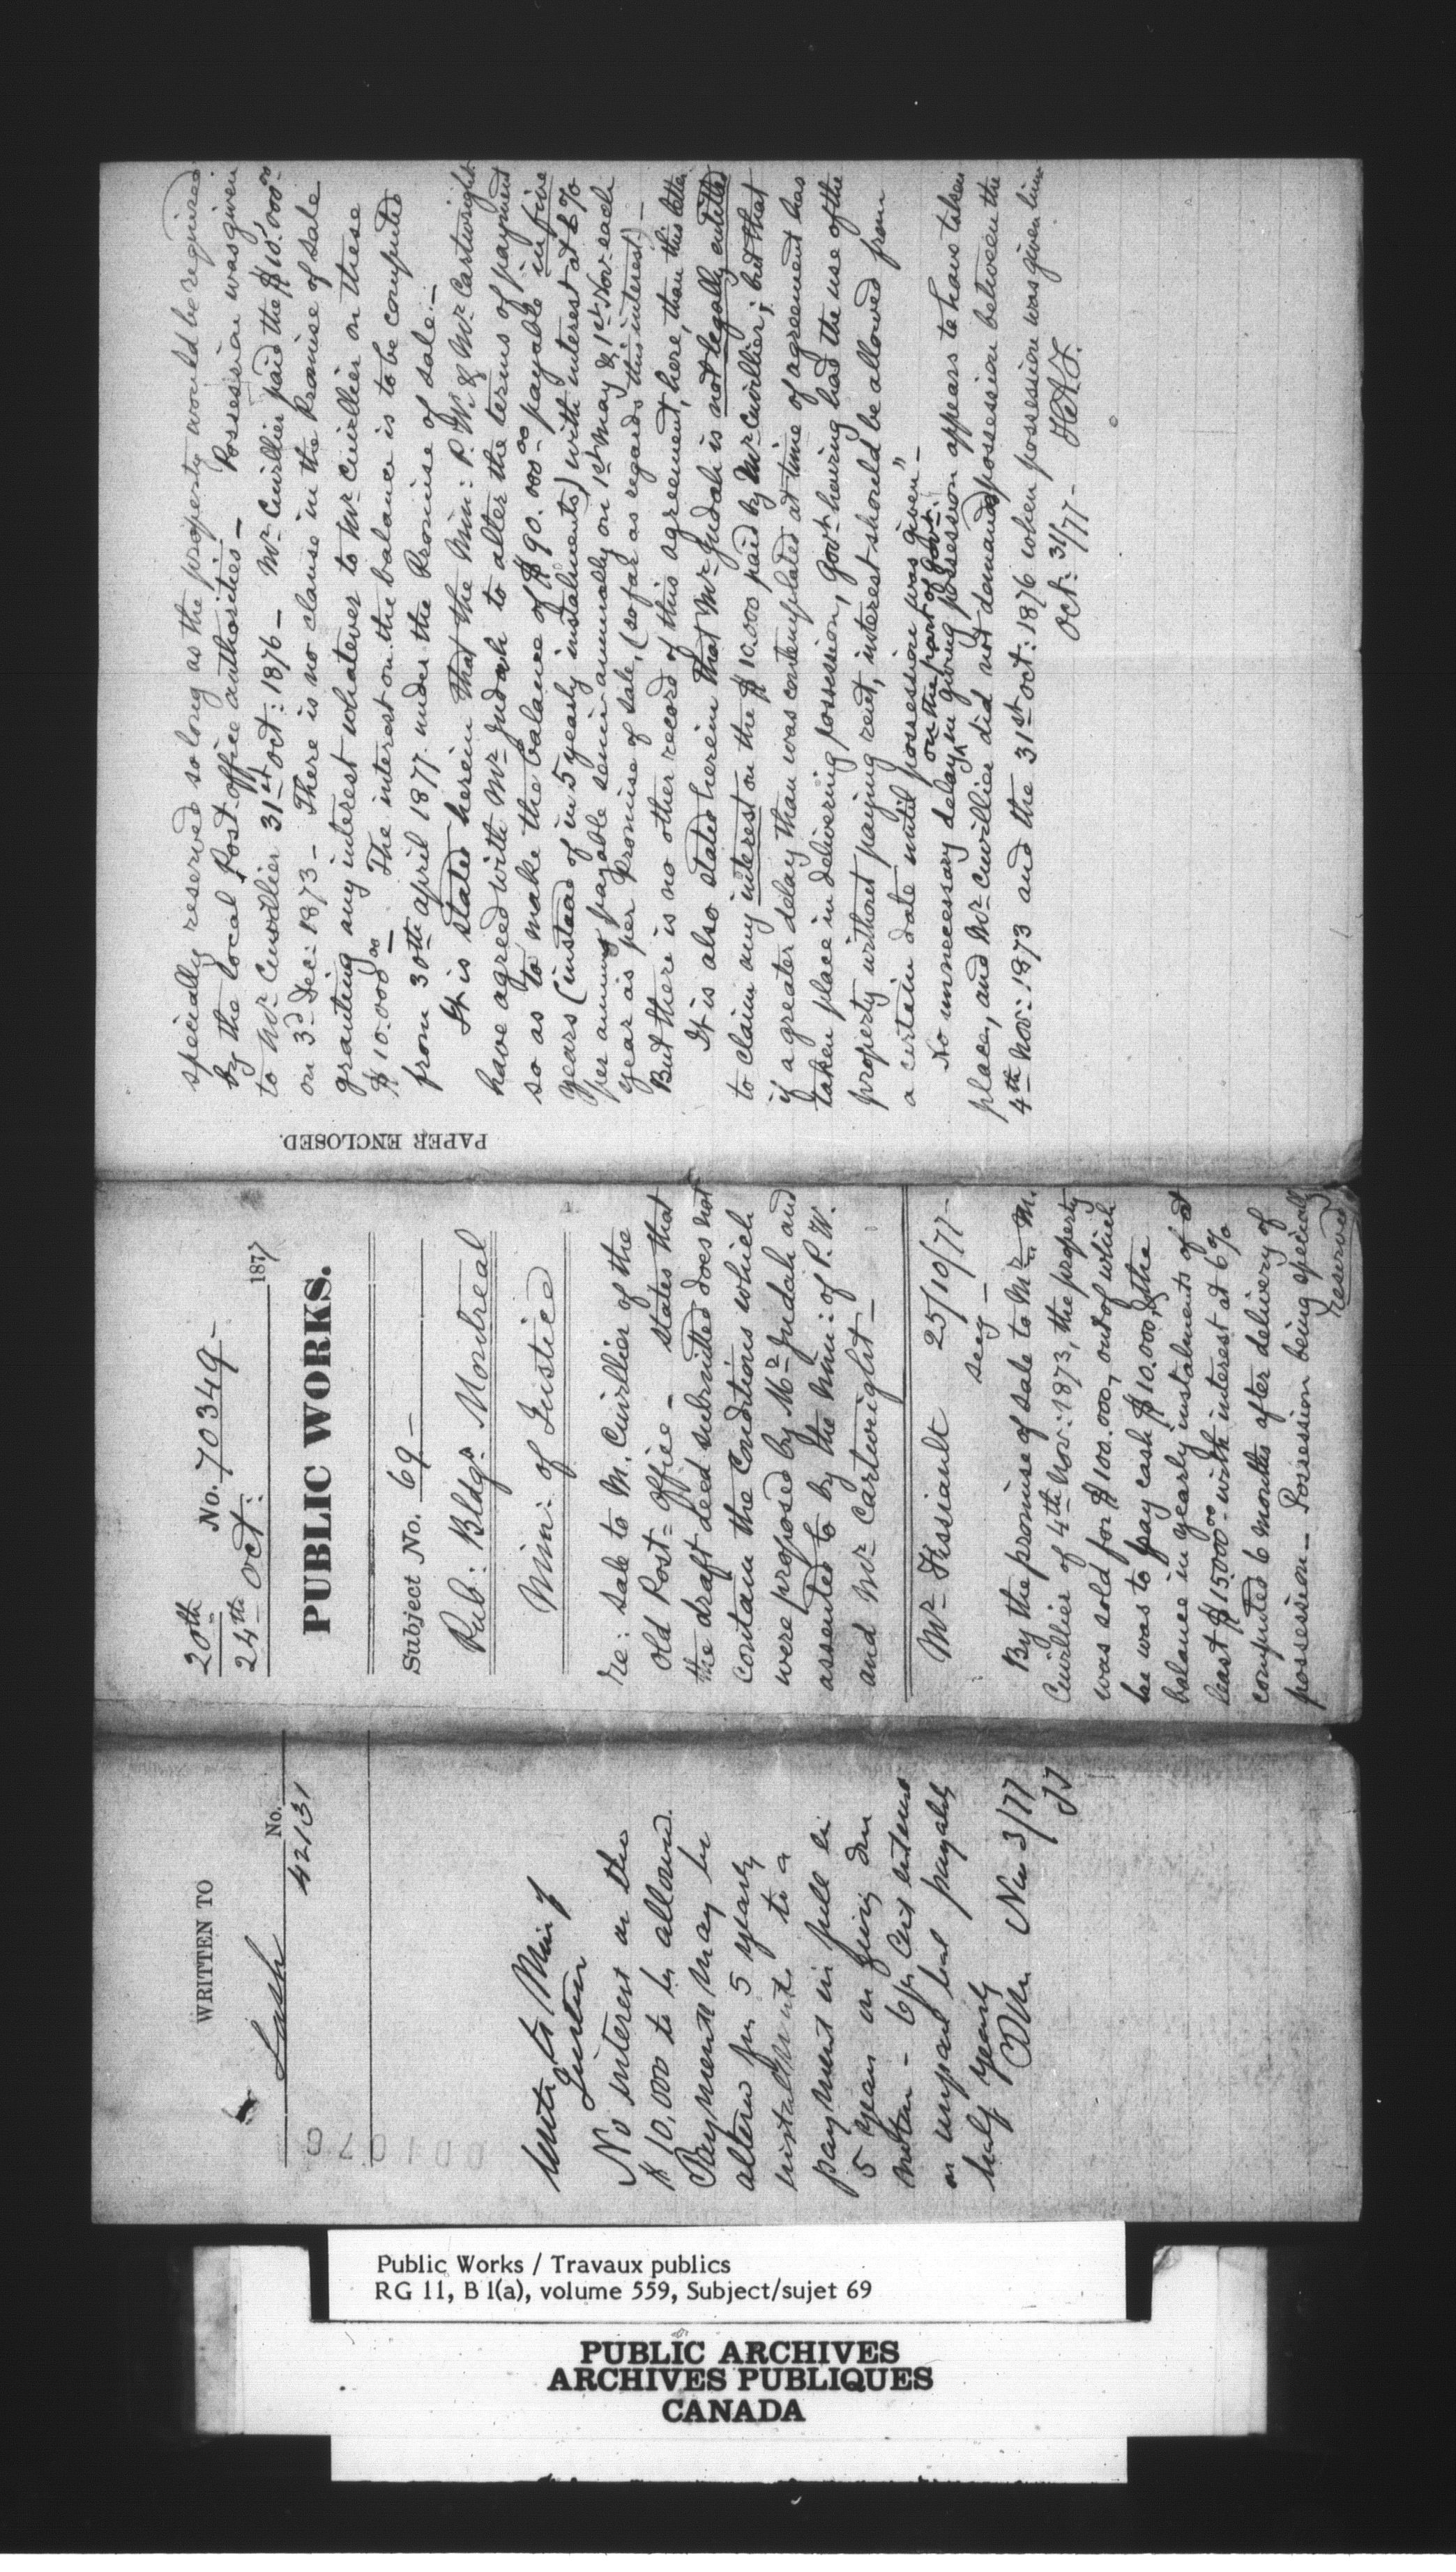 WRITTEN TO
Lash
No.
42131
Write to Min of
Justice
No interest on the
$10,000 to be allowed.
Payment may be
altered from 5 yearly
instalments to a
payment in full in
5 years on giving due
notice - 6 per cent interest
on unpaid bal payable
half yearly
Nov 3/77
001070
20th
24th Oct: No. 70349 -
1877
PUBLIC WORKS.
Subject No. 69 -
Pub: Bldgs. Montreal
Min: of Justice
re: Sale to M. Cuvillier of the
Old Post=Office - states that
the draft deed submitted does not
contain the conditions which
were proposed by Mr Judah and
assented to by the Min: of P. W.
and Mr Cartwright -
Mr Fissiault 25/10/77 -
By the promise of sale to Mr M.
Cuvillier of 4th Nov: 1873, the property
was sold for $100.000, out of which
he was to pay cash $10.000, & the
balance in yearly instalments of at
least $15000.00 with interest at 6%
computed 6 months after delivery of
possession - Possession being specially
reserved
PAPER ENCLOSED.
specially reserved so long as the property would be required
by the local Post-Office authorities - Possession was given
to Mr Cuvillier 31st Oct: 1876 - Mr Cuvillier paid the $10,000.00
on 3d Dec: 1873 - There is no clause in the Promise of Sale
granting any interest whatever to Mr Cuvillier on these
$10.000.00 - The interest on the balance is to be computed
from 30th April 1877 under the Promise of sale. -
It is stated herein that the Min: P. W. & Mr Cartwright
have agreed with Mr Judah to alter the terms of payment
so as to make the balance of $90.000.00 payable in five
years (instead of in 5 yearly instalments) with interest at 6%
per annum payable semi-annually on 1st May & 1st Nov. each
year as per Promise of sale, (so far as regards this interest) -
But there is no other record of this agreement, here, than this letter.
It is also stated herein that Mr Judah is not legally entitled
to claim any interest on the $10.000 paid by Mr Cuvillier; but that
if a greater delay than was contemplated at time of agreement has
taken place in delivering possession, Govt having had the use of the
property without paying rent, interest should be allowed from
a certain date until possession was given" -
on the part of Govt:
No unnecessary delay in giving possession appears to have taken
place, and Mr Cuvillier did not demand possession between the
4th Nov: 1873 and the 31st Oct: 1876 when possession was given him
Oct: 31/77 - H.A.F.
Public Works / Travaux publics
RG 11, B 1(a), volume 559, Subject/sujet 69
PUBLIC ARCHIVES
ARCHIVES PUBLIQUES
CANADA